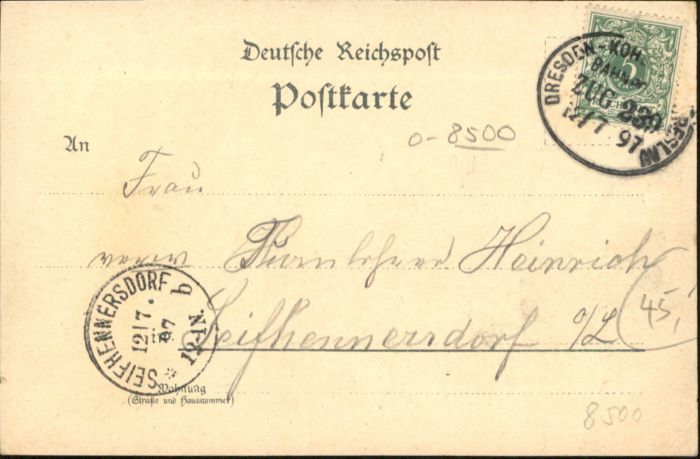 Deutsche Reichspost
Postkarte
DRESDEN-KOH.
BAHNP.
ZUG 239
12/7 97
BRESLAU
0-8500
An
Frau
verw Turnlehrer Heinrich
Seifhennersdorf o/L
45,-
SEIFHENNERSDORF
12/7.
97
* b
Wohnung
(Straße und Hausnummer)
8500